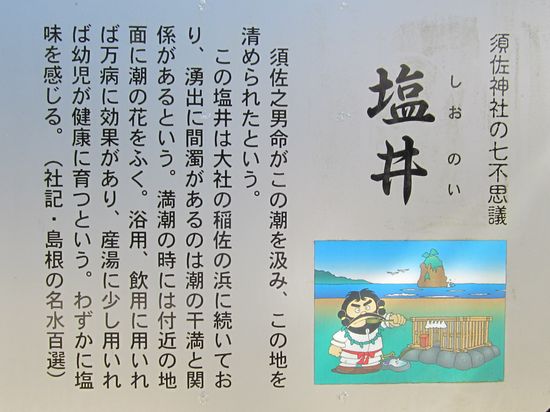 須佐神社の七不思議
しおのい
塩井
須佐之男命がこの潮を汲み、この地を
清められたという。
この塩井は大社の稲佐の浜に続いてお
り、湧出に間濁があるのは潮の干満と関
係があるという。満潮の時には付近の地
面に潮の花をふく。浴用、飲用に用いれ
ば万病に効果があり、産湯に少し用いれ
ば幼児が健康に育つという。わずかに塩
味を感じる。（社記・島根の名水百選）